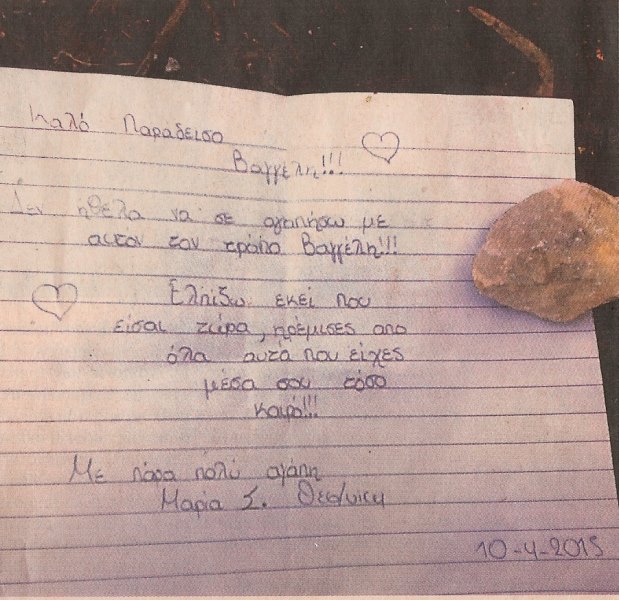 Καλό Παραδεισο
Βαγγέλη!!!
Δεν ηθελα να σε αγαπήσω με
αυτόν τον τρόπο Βαγγέλη!!!
Ελπίζω εκεί που
είσαι τώρα, ηρέμισες απο
όλα αυτά που είχες
μέσα σου τόσο
καιρό!!!
Με πάρα πολύ αγάπη
Μαρία Σ. Θεσ/νικη
10-4-2015